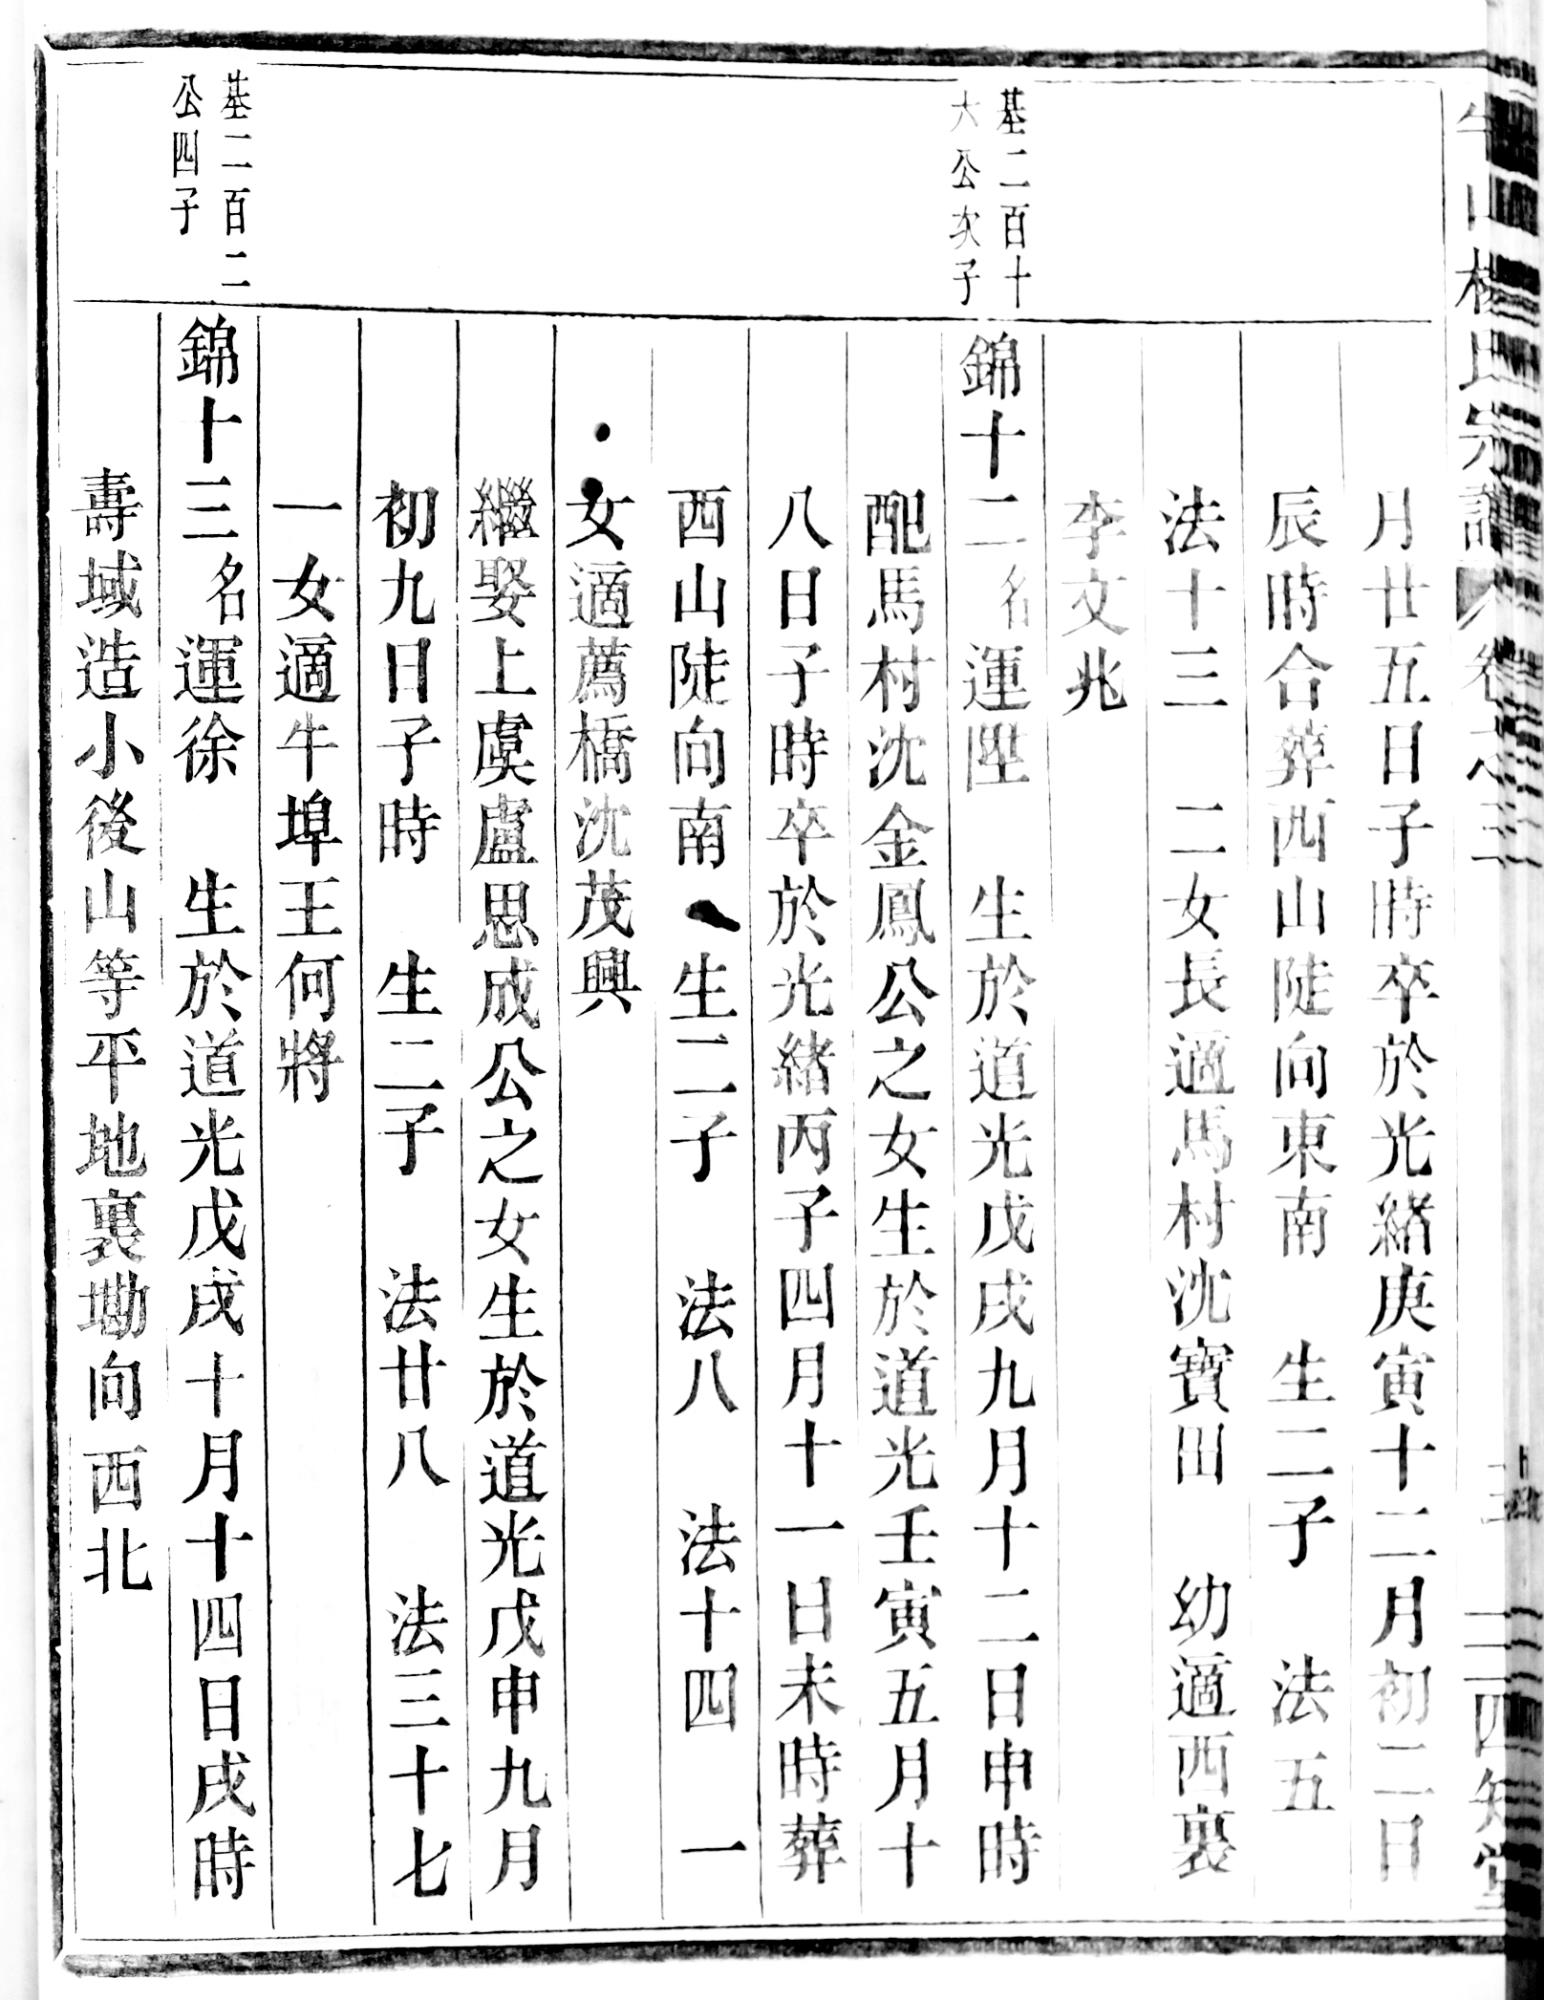 月廿五日子時卒於光緒庚寅十二月初二日
辰時合葬西山陡向東南　生二子　法五
法十三　二女長適馬村沈寶田　幼適西裏
李文兆
基二百十
六公次子
錦十二名運陞　生於道光戊戌九月十二日申時
配馬村沈金鳳公之女生於道光壬寅五月十
八日子時卒於光緒丙子四月十一日未時葬
西山陡向南　生二子　法八　法十四　一
女適薦橋沈茂興
繼娶上虞盧思成公之女生於道光戊申九月
初九日子時　生二子　法廿八　法三十七
一女適牛埠王何將
基二百二
公四子
錦十三名運徐　生於道光戊戌十月十四日戌時
壽域造小後山等平地裏墈向西北